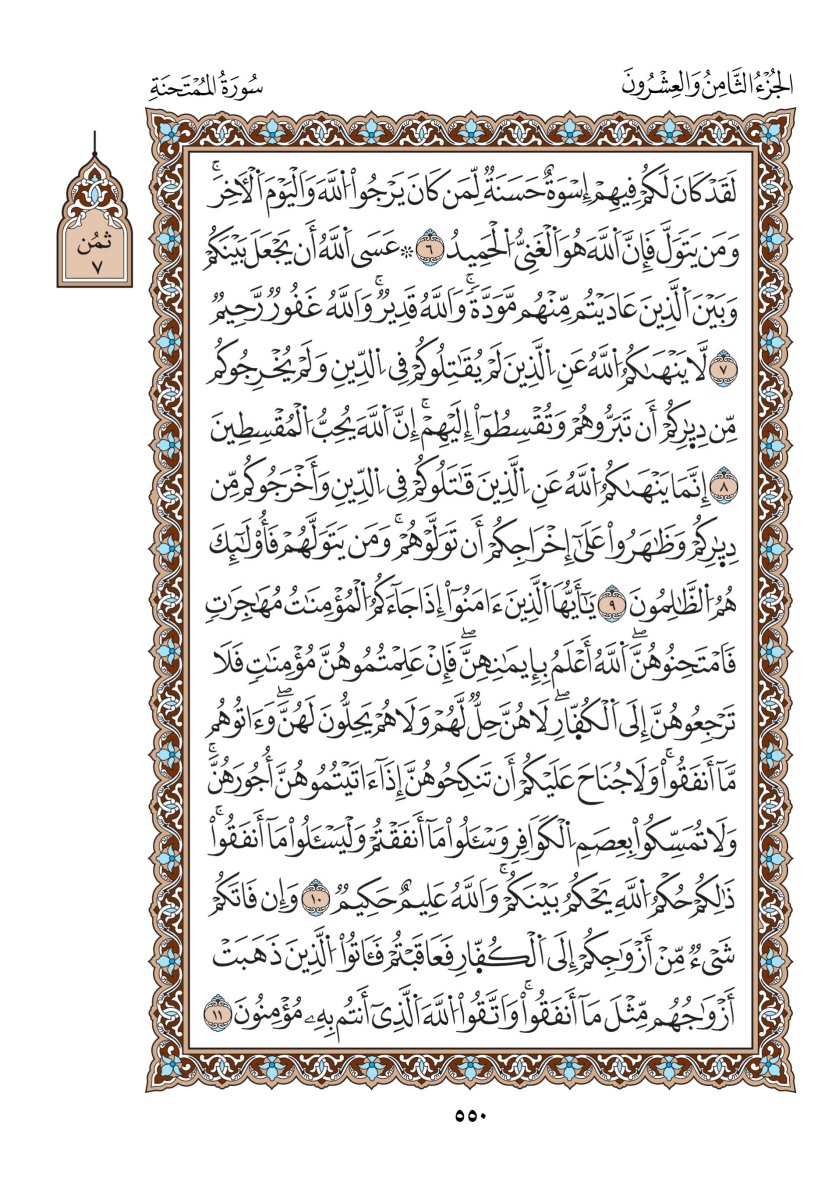 الجُزْءُ الثَّامِنُ وَالعِشْرُونَ
سُورَةُ المُمْتَحنَةِ
ثمُن
٧
لَقَدْ كَانَ لَكُمْ فِيهِمْ إِسْوَةٌ حَسَنَةٌ لِّمَن كَانَ يَرْجُواْ اُللَّهَ وَالْيَوْمَ اَلْأَخِرَۚ
وَمَن يَتَوَلَّ فَإِنَّ اَللَّهَ هُوَ اَلْغَنِىُّ اُلْحَمِيدُ ٦ ۞ عَسَى اَللَّهُ أَن يَجْعَلَ بَيْنَكُمْ
وَبَيْنَ اَلَّذِينَ عَادَيْتُم مِّنْهُم مَّوَدَّةٗۚ وَاللَّهُ قَدِيرٌۚ وَاللَّهُ غَفُورٌ رَّحِيمٌ
٧ لَّا يَنْهَىٰكُمُ اُللَّهُ عَنِ اِلَّذِينَ لَمْ يُقَٰتِلُوكُمْ فِى اِلدِّينِ وَلَمْ يُخْرِجُوكُم
مِّن دِيٰ۪رِكُمْ أَن تَبَرُّوهُمْ وَتُقْسِطُوٓاْ إِلَيْهِمْۚ إِنَّ اَللَّهَ يُحِبُّ اُلْمُقْسِطِينَ
٨ إِنَّمَا يَنْهَىٰكُمُ اُللَّهُ عَنِ اِلَّذِينَ قَٰتَلُوكُمْ فِى اِلدِّينِ وَأَخْرَجُوكُم مِّن
دِيٰ۪رِكُمْ وَظَٰهَرُواْ عَلَىٰٓ إِخْرَاجِكُمْ أَن تَوَلَّوْهُمْۚ وَمَن يَتَوَلَّهُمْ فَأُوْلَٰٓئِكَ
هُمُ اُلظَّٰلِمُونَ ٩ يَٰٓأَيُّهَا اَلَّذِينَ ءَامَنُوٓاْ إِذَا جَآءَكُمُ اُلْمُؤْمِنَٰتُ مُهَٰجِرَٰتٖ
فَامْتَحِنُوهُنَّۖ اَللَّهُ أَعْلَمُ بِإِيمَٰنِهِنَّۖ فَإِنْ عَلِمْتُمُوهُنَّ مُؤْمِنَٰتٖ فَلَا
تَرْجِعُوهُنَّ إِلَى اَلْكُفّ۪ارِۖ لَا هُنَّ حِلٌّ لَّهُمْ وَلَا هُمْ يَحِلُّونَ لَهُنَّۖ وَءَاتُوهُم
مَّآ أَنفَقُواْۚ وَلَا جُنَاحَ عَلَيْكُمْ أَن تَنكِحُوهُنَّ إِذَآ ءَاتَيْتُمُوهُنَّ أُجُورَهُنَّۚ
وَلَا تُمَسِّكُواْ بِعِصَمِ اِلْكَوَافِرِ وَسْـَٔلُواْ مَآ أَنفَقْتُمْ وَلْيَسْـَٔلُواْ مَآ أَنفَقُواْۚ
ذَٰلِكُمْ حُكْمُ اُللَّهِ يَحْكُمُ بَيْنَكُمْۚ وَاللَّهُ عَلِيمٌ حَكِيمٌ ١٠ وَإِن فَاتَكُمْ
شَىْءٌ مِّنْ أَزْوَٰجِكُمْ إِلَى اَلْكُفّ۪ارِ فَعَاقَبْتُمْ فَـَٔاتُواْ اُلَّذِينَ ذَهَبَتْ
أَزْوَٰجُهُم مِّثْلَ مَآ أَنفَقُواْۚ وَاتَّقُواْ اُللَّهَ اَلَّذِىٓ أَنتُم بِهِۦ مُؤْمِنُونَ ١١
٥٥٠